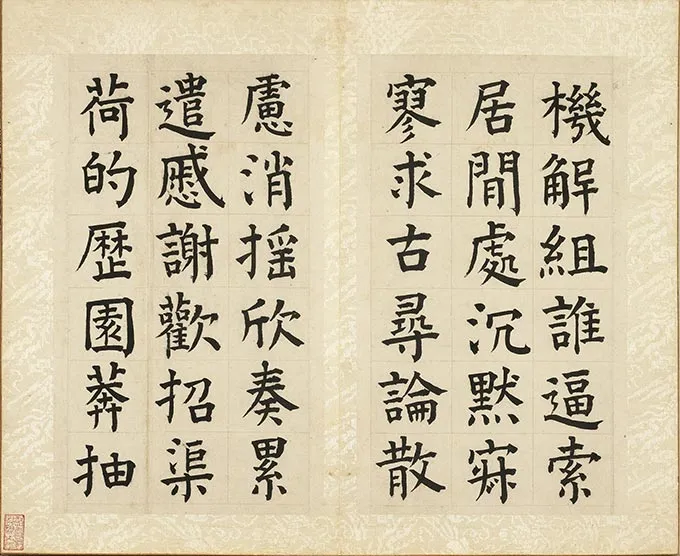 機解組誰逼索
居閒處沉默寂
寥求古尋論散
慮消摇欣奏累
遣慼謝歡招渠
荷的歷園莽抽